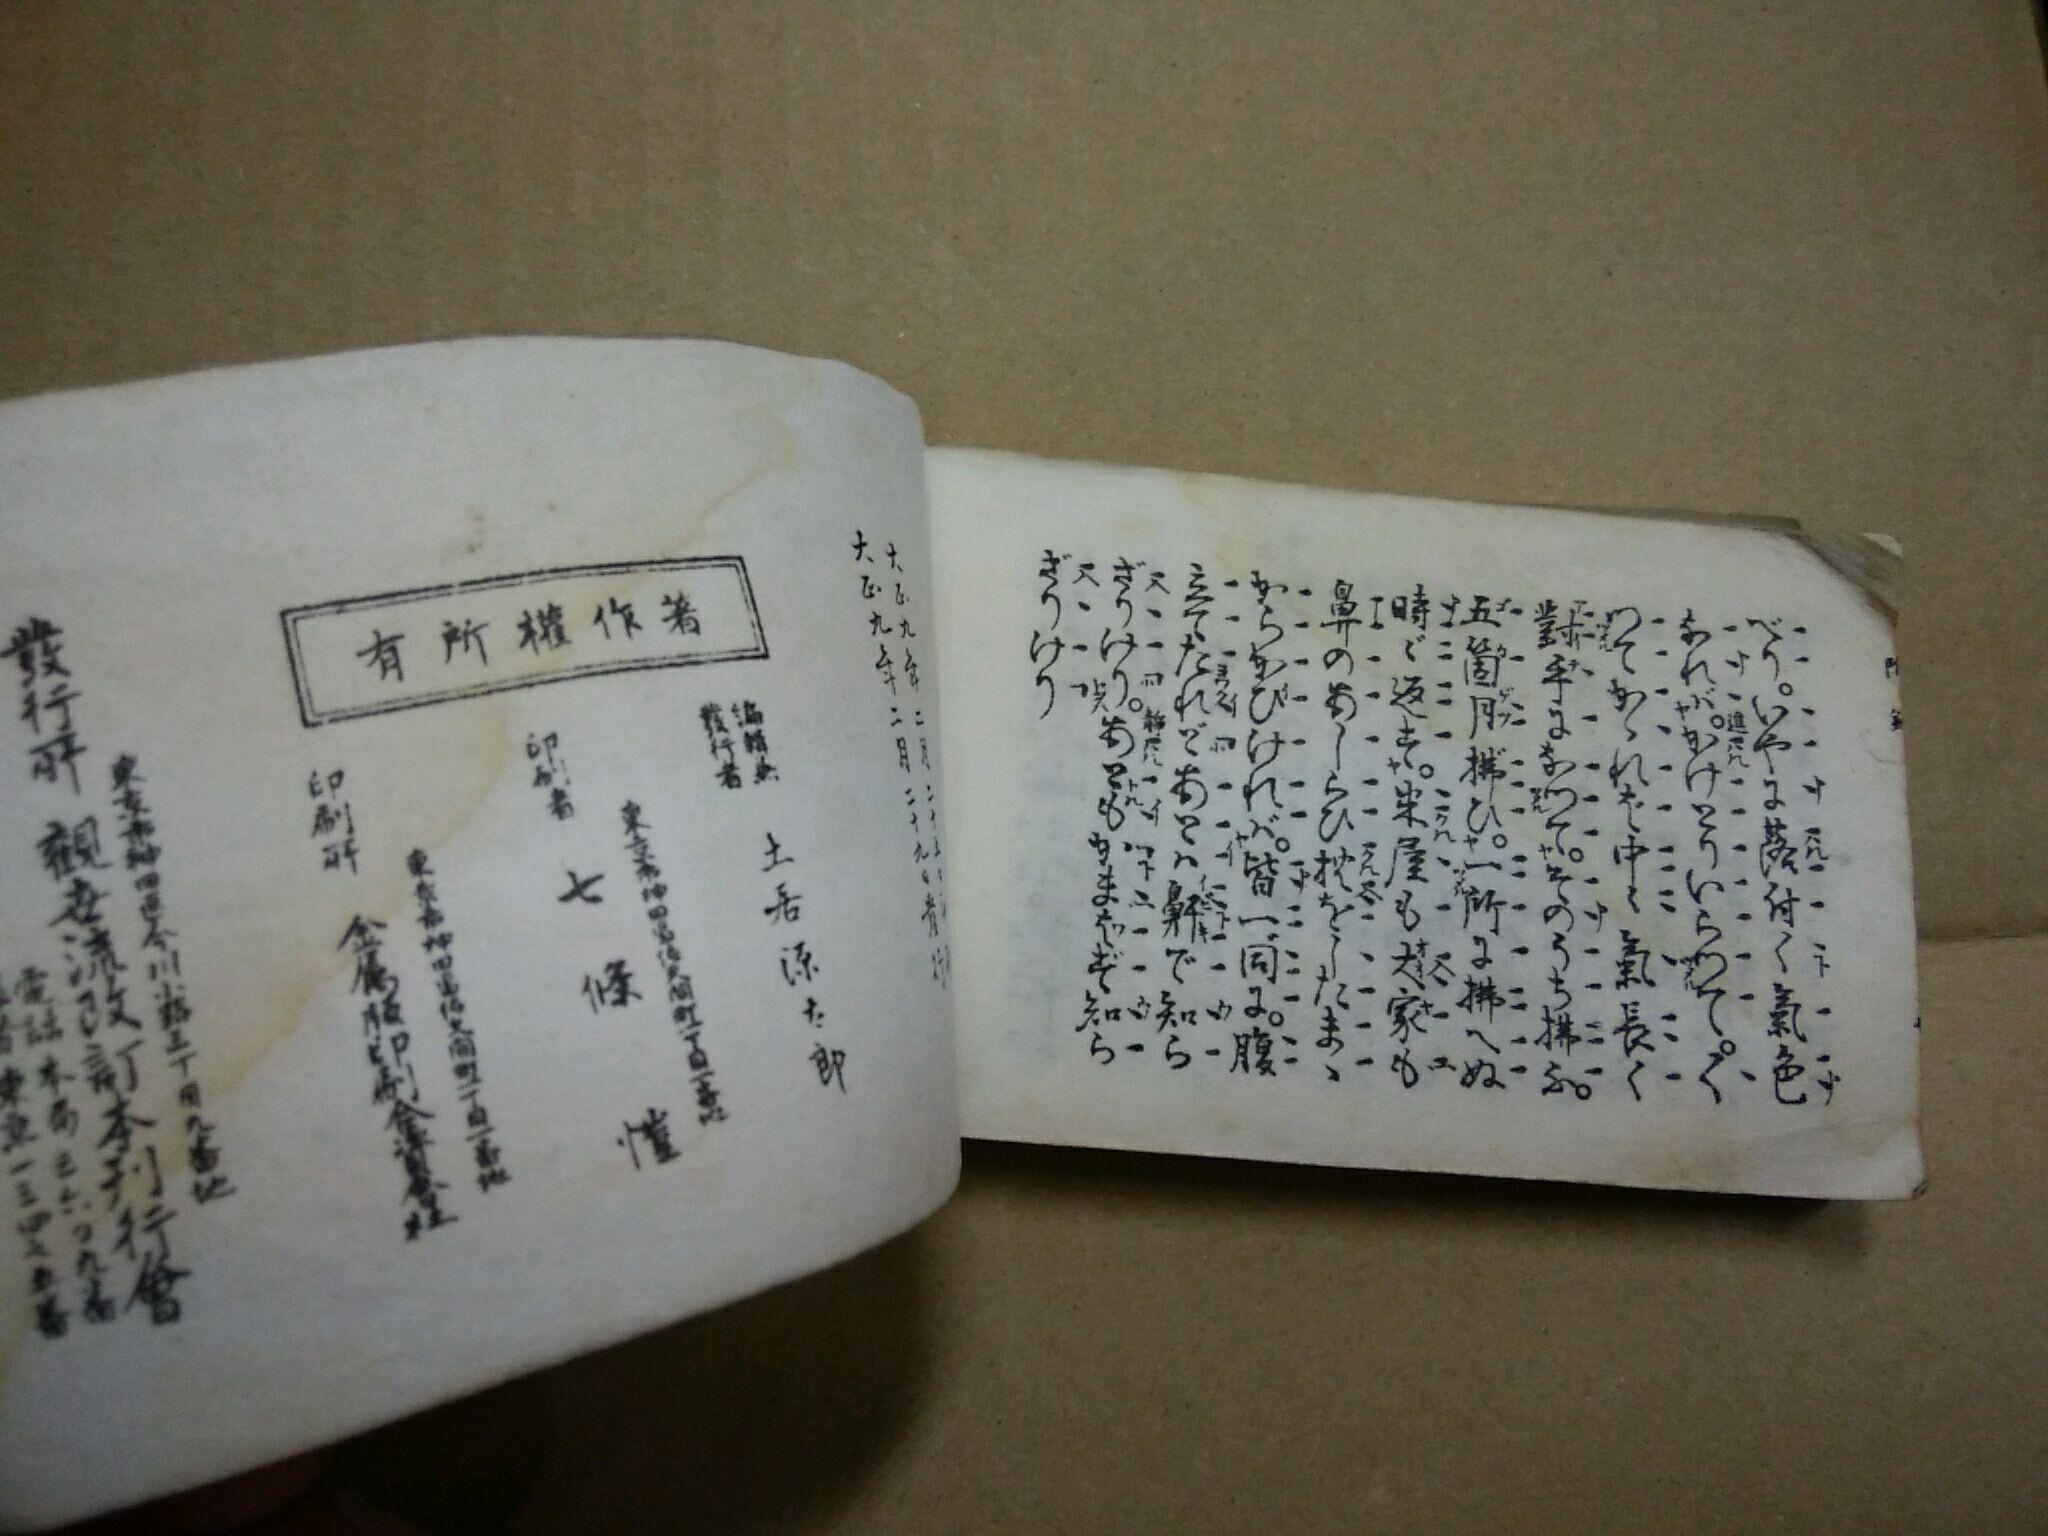 附録
べり。いやに落付く氣色
なれば。かけとりいらつて。で
つでかゝれど中々氣長く
對手になつて。そのうち拂ふ。
五箇月拂ひ。一所に拂へぬ
時ど返す。米屋も大家も
鼻のあしらひ枕をしたまゝ
からかひければ。皆一同に。腹
立てたれどあとハ鼾で知ら
ざりけり。あともかまはず知ら
ざりけり
大正九年二月二十五日
大正九年二月二十九日發行
著作權所有
編輯兼
發行者
土居源太郎
東京市神田區佐久間町一丁目一番地
印刷者
七條愷
東京市神田區佐久間町一丁目一番地
印刷所
金屬版印刷合資會社
東京市神田區今川小路三丁目九番地
發行所
觀世流改訂本刊行會
電話本局三六〇九番